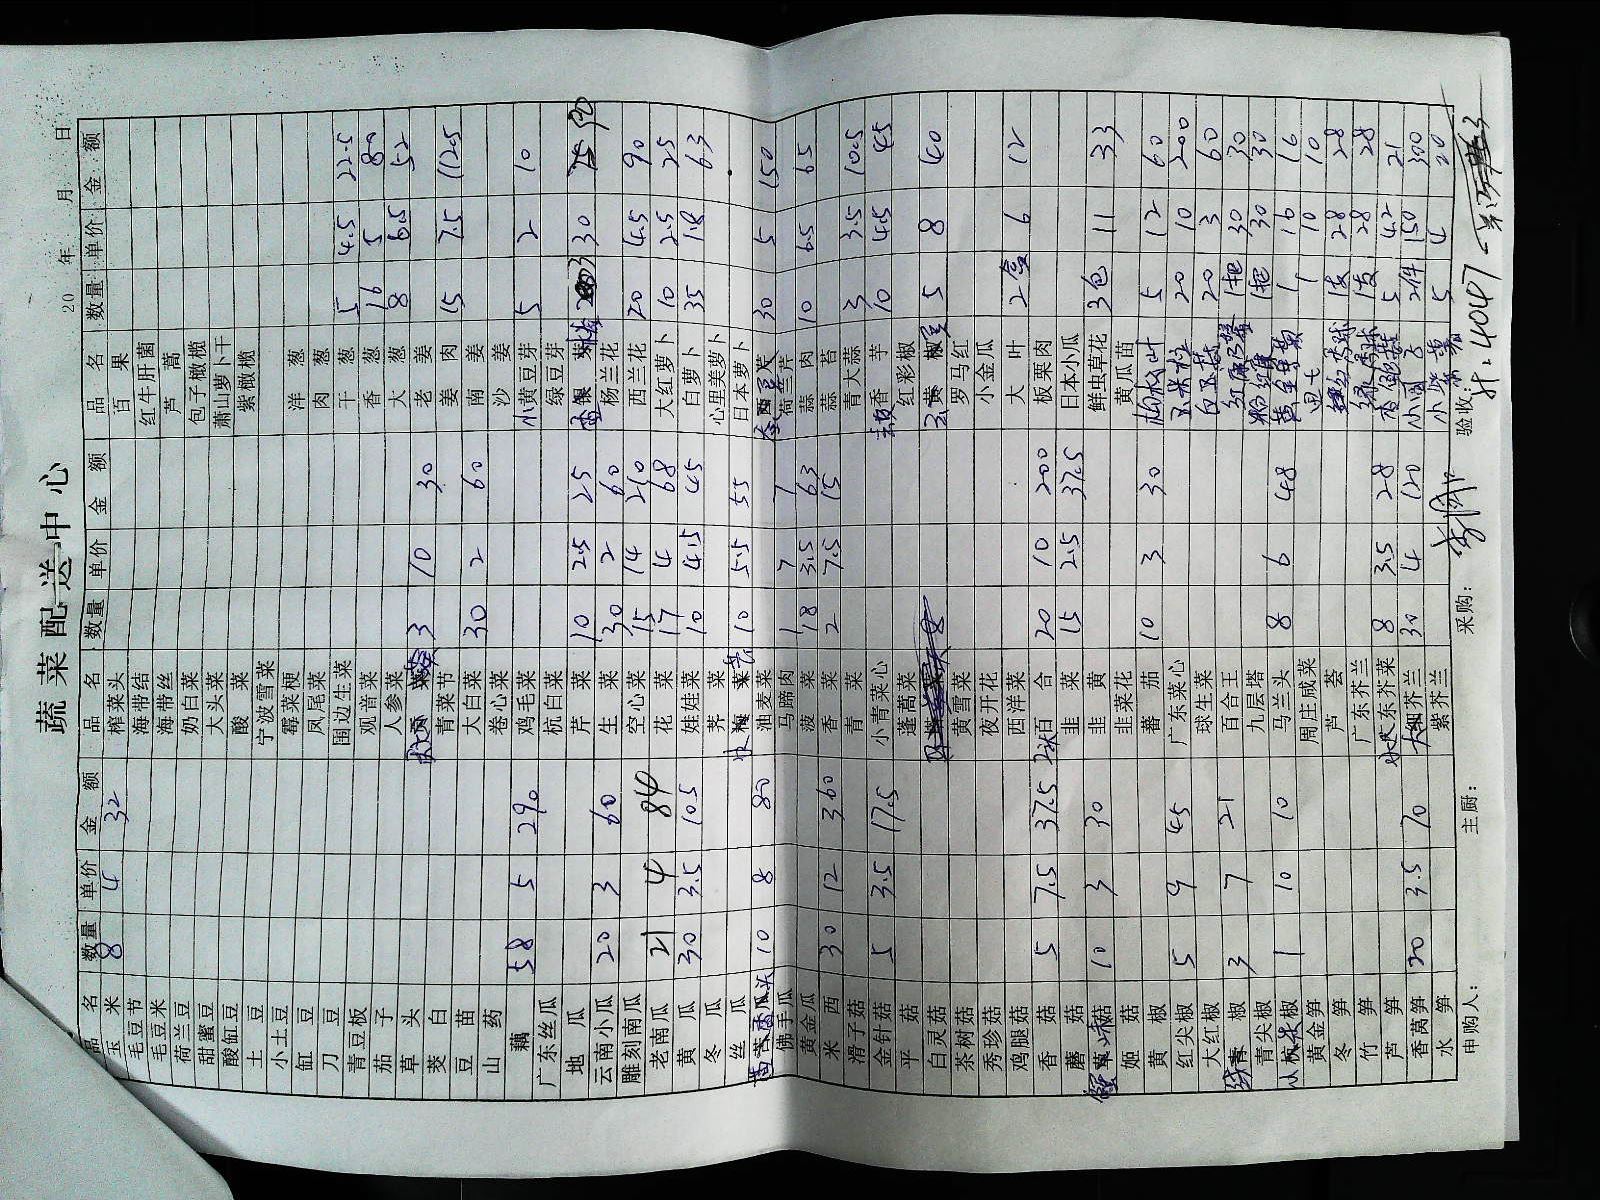 蔬菜配送中心
20 年 月 日
品名 数量 单价 金额 品名 数量 单价 金额 品名 数量 单价 金额
玉米 8 4 32 榨菜头 百果
毛豆节 海带结 红牛肝菌
毛豆米 海带丝 芦蒿
荷兰豆 奶白菜 包子橄榄
甜蜜豆 大头菜 萧山萝卜干
酸缸豆 酸菜 紫橄榄
土豆 宁波雪菜
小土豆 霉菜梗 洋葱
缸豆 凤尾菜 肉葱
刀豆 围边生菜 干葱 5 4.5 22.5
青豆板 观音菜 香葱 16 5 80
茄子 人参菜 大葱 8 6.5 52
草头 3 10 30 老姜
茭白 青菜节 姜肉 15 7.5 112.5
豆苗 大白菜 30 2 60 南姜
山药 卷心菜 沙姜
藕 58 5 290 鸡毛菜 小黄豆芽 5 2 10
广东丝瓜 杭白菜 绿豆芽
地瓜 芹菜 10 2.5 25 3 30 90
云南小瓜 20 3 60 生菜 30 2 60 杨兰花
雕刻南瓜 空心菜 15 14 210 西兰花 20 4.5 90
老南瓜 21 4 84 花菜 17 4 68 大红萝卜 10 2.5 25
黄瓜 30 3.5 105 娃娃菜 10 4.5 45 白萝卜 35 1.8 63
冬瓜 荠菜 心里美萝卜
丝瓜 10 5.5 55 日本萝卜
10 8 80 油麦菜 30 5 150
佛手瓜 马蹄肉 1 7 7 荷兰芹
黄金瓜 菠菜 18 3.5 63 蒜肉 10 6.5 65
米西 30 12 360 香菜 2 7.5 15 蒜苔
滑子菇 青菜 青大蒜 3 3.5 10.5
金针菇 5 3.5 17.5 小青菜心 去皮香芋 10 4.5 45
平菇 蓬蒿菜 红彩椒
白灵菇 黄椒 5 8 40
茶树菇 黄雪菜 罗马红
秀珍菇 夜开花 小金瓜
鸡腿菇 西洋菜 大叶 2盒 6 12
香菇 5 7.5 37.5 百合 20 10 200 板栗肉
蘑菇 韭菜 15 2.5 37.5 日本小瓜
蟹味菇 10 3 30 韭黄 鲜虫草花 3包 11 33
姬菇 韭菜花 黄瓜苗
黄椒 番茄 10 3 30 柏树叶 5 12 60
红尖椒 5 9 45 广东菜心 玉米粒 20 10 200
大红椒 球生菜 白玉菇 20 3 60
线青椒 3 7 21 百合王 1把 30 30
青尖椒 九层塔 1把 30 30
椒 1 10 10 马兰头 8 6 48 1 16 16
黄金笋 周庄咸菜 田七 1 10 10
冬笋 芦荟 1支 28 28
竹笋 广东芥兰 1支 28 28
芦笋 广东芥菜 8 3.5 28 5 4.2 21
香莴笋 20 3.5 70 芥兰 30 4 120 2件 150 300
水笋 紫芥兰 5 4 20
申购人： 主厨： 采购： 验收：
4047